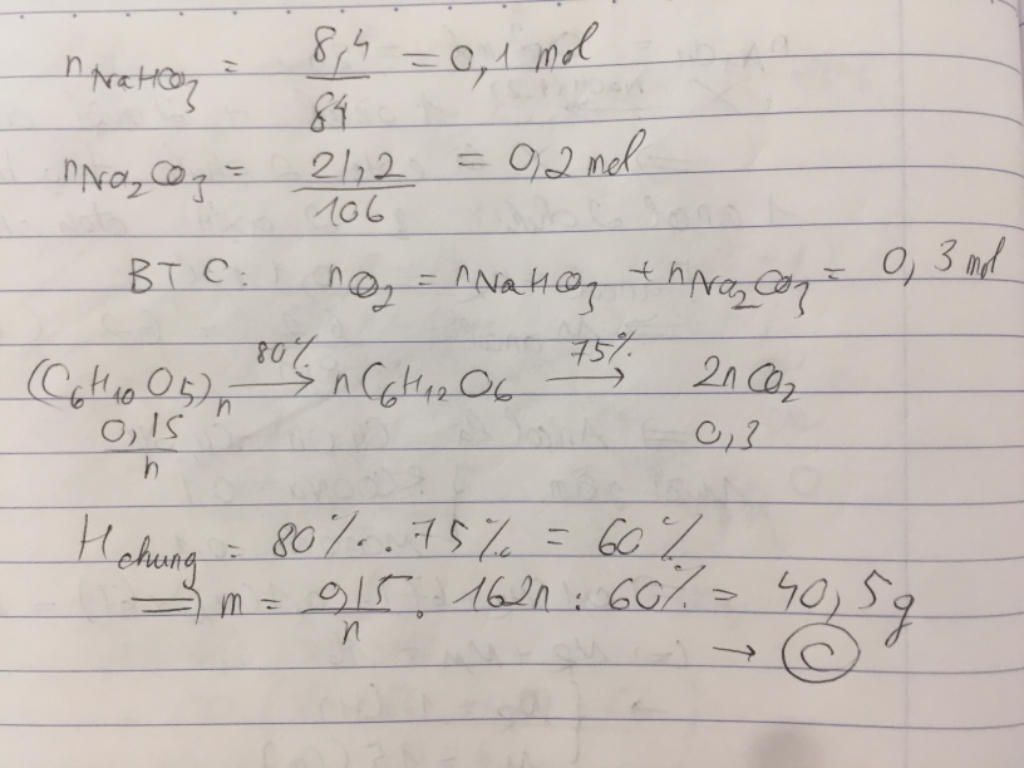 nNaHCO3 = 8,4/84 = 0,1 mol
nNa2CO3 = 21,2/106 = 0,2 mol
BTC: nCO2 = nNaHCO3 + nNa2CO3 = 0,3 mol
(C6H10O5)n 80%→ nC6H12O6 75%→ 2nCO2
0,15/n 0,3
Hchung = 80%.75% = 60%
⇒ m = 0,15/n . 162n : 60% = 40,5g
→ C